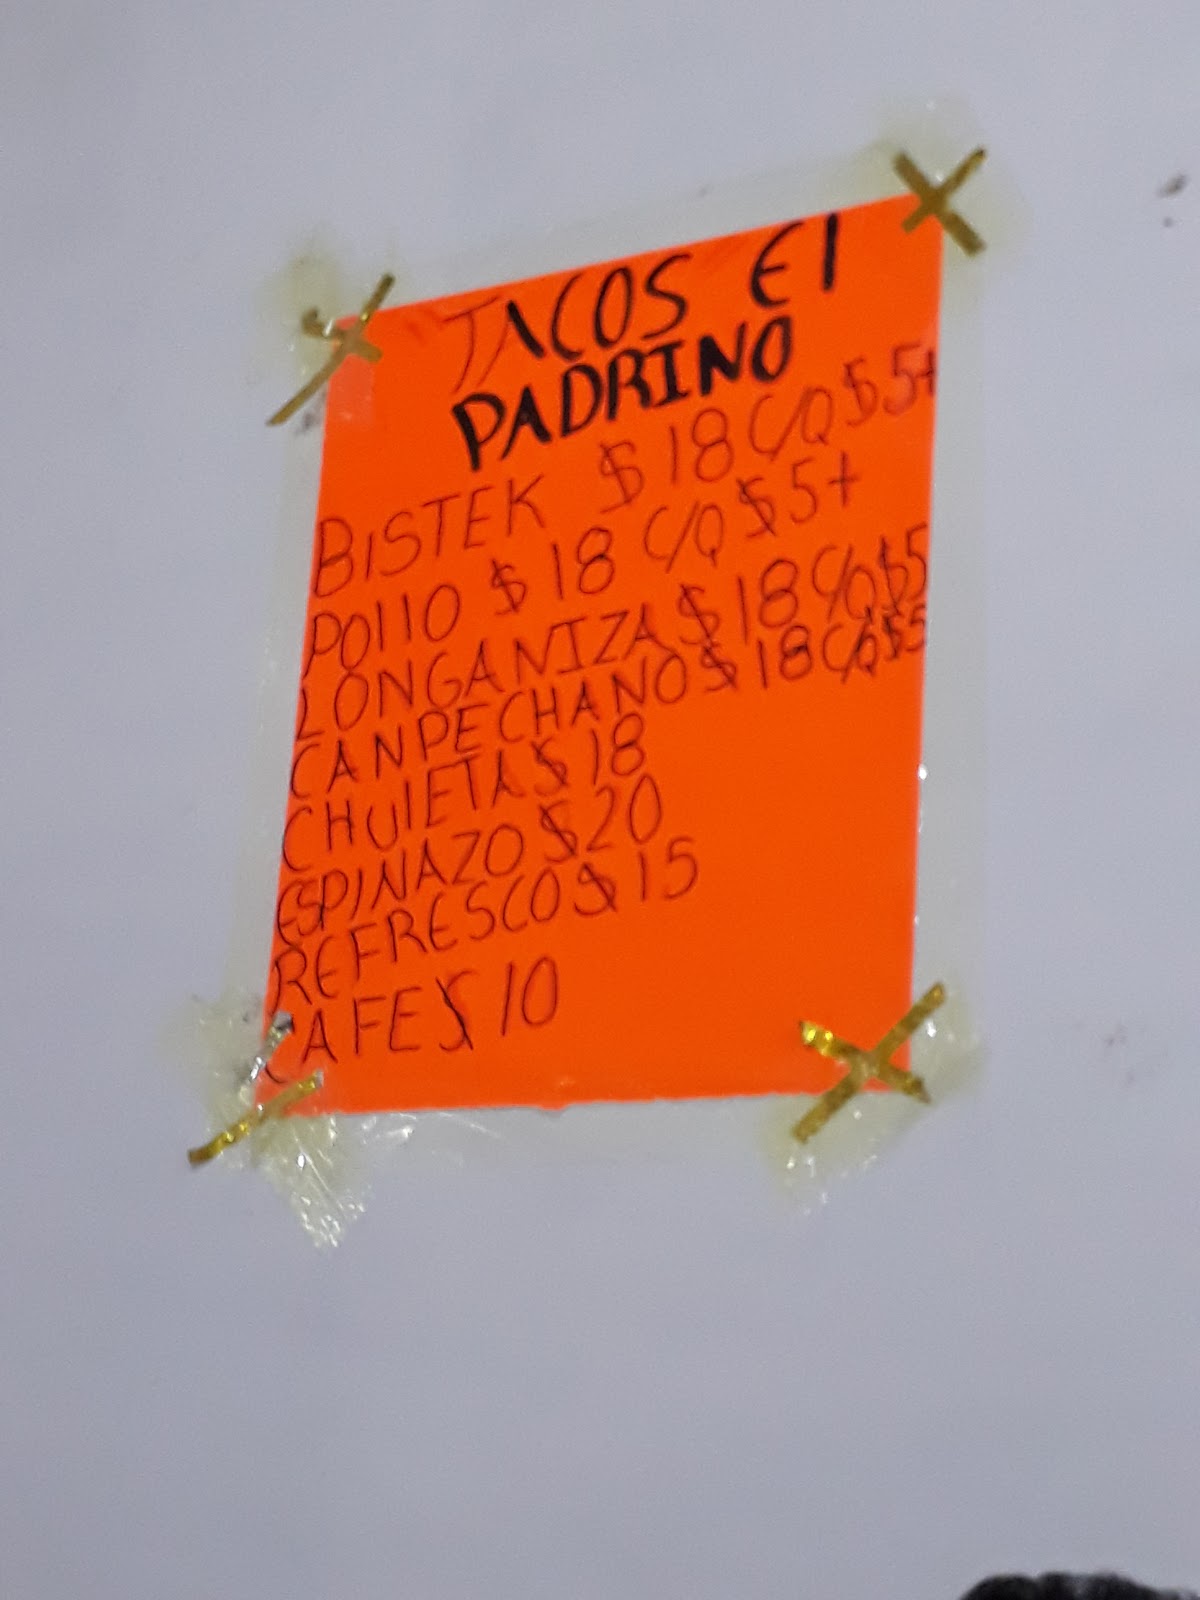 TACOS El
PADRINO
BISTEK $18 C/Q $5+
POllO $18 C/Q $5+
LONGANIZA $18 C/Q $5
CANPECHANO $18 C/Q $5
CHUlETA $18
ESPINAZO $20
REFRESCO $15
CAFE $10